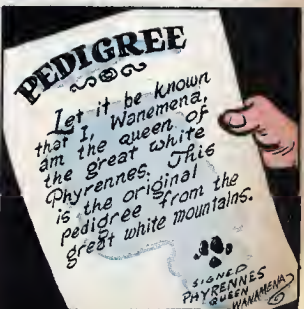 PEDIGREE
Let it be known
that I, Wanemena,
am the queen of
the great white
Phyrennes. This
is the original
pedigree from the
great white mountains.
SIGNED
PHYRENNES
QUEEN
WANAMENA